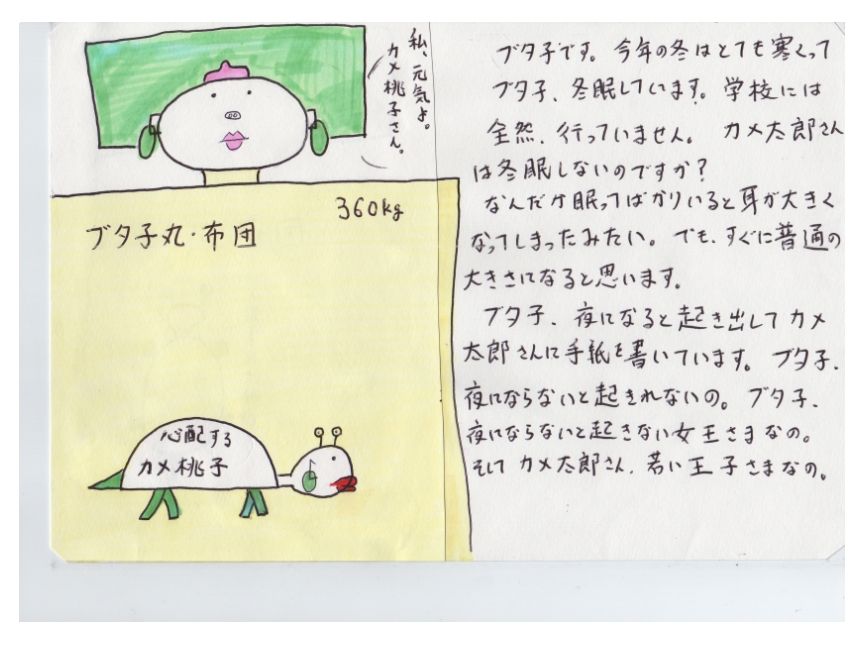 私、元気よ。
カメ桃子さん。
360kg
ブタ子丸・布団
心配する
カメ桃子
ブタ子です。今年の冬はとても寒くって
ブタ子、冬眠しています。学校には
全然、行っていません。カメ太郎さん
は冬眠しないのですか?
なんだか眠ってばかりいると耳が大きく
なってしまったみたい。でも、すぐに普通の
大きさになると思います。
ブタ子、夜になると起き出してカメ
太郎さんに手紙を書いています。ブタ子、
夜にならないと起きれないの。ブタ子、
夜にならないと起きない女王さまなの。
そしてカメ太郎さん、若い王子さまなの。